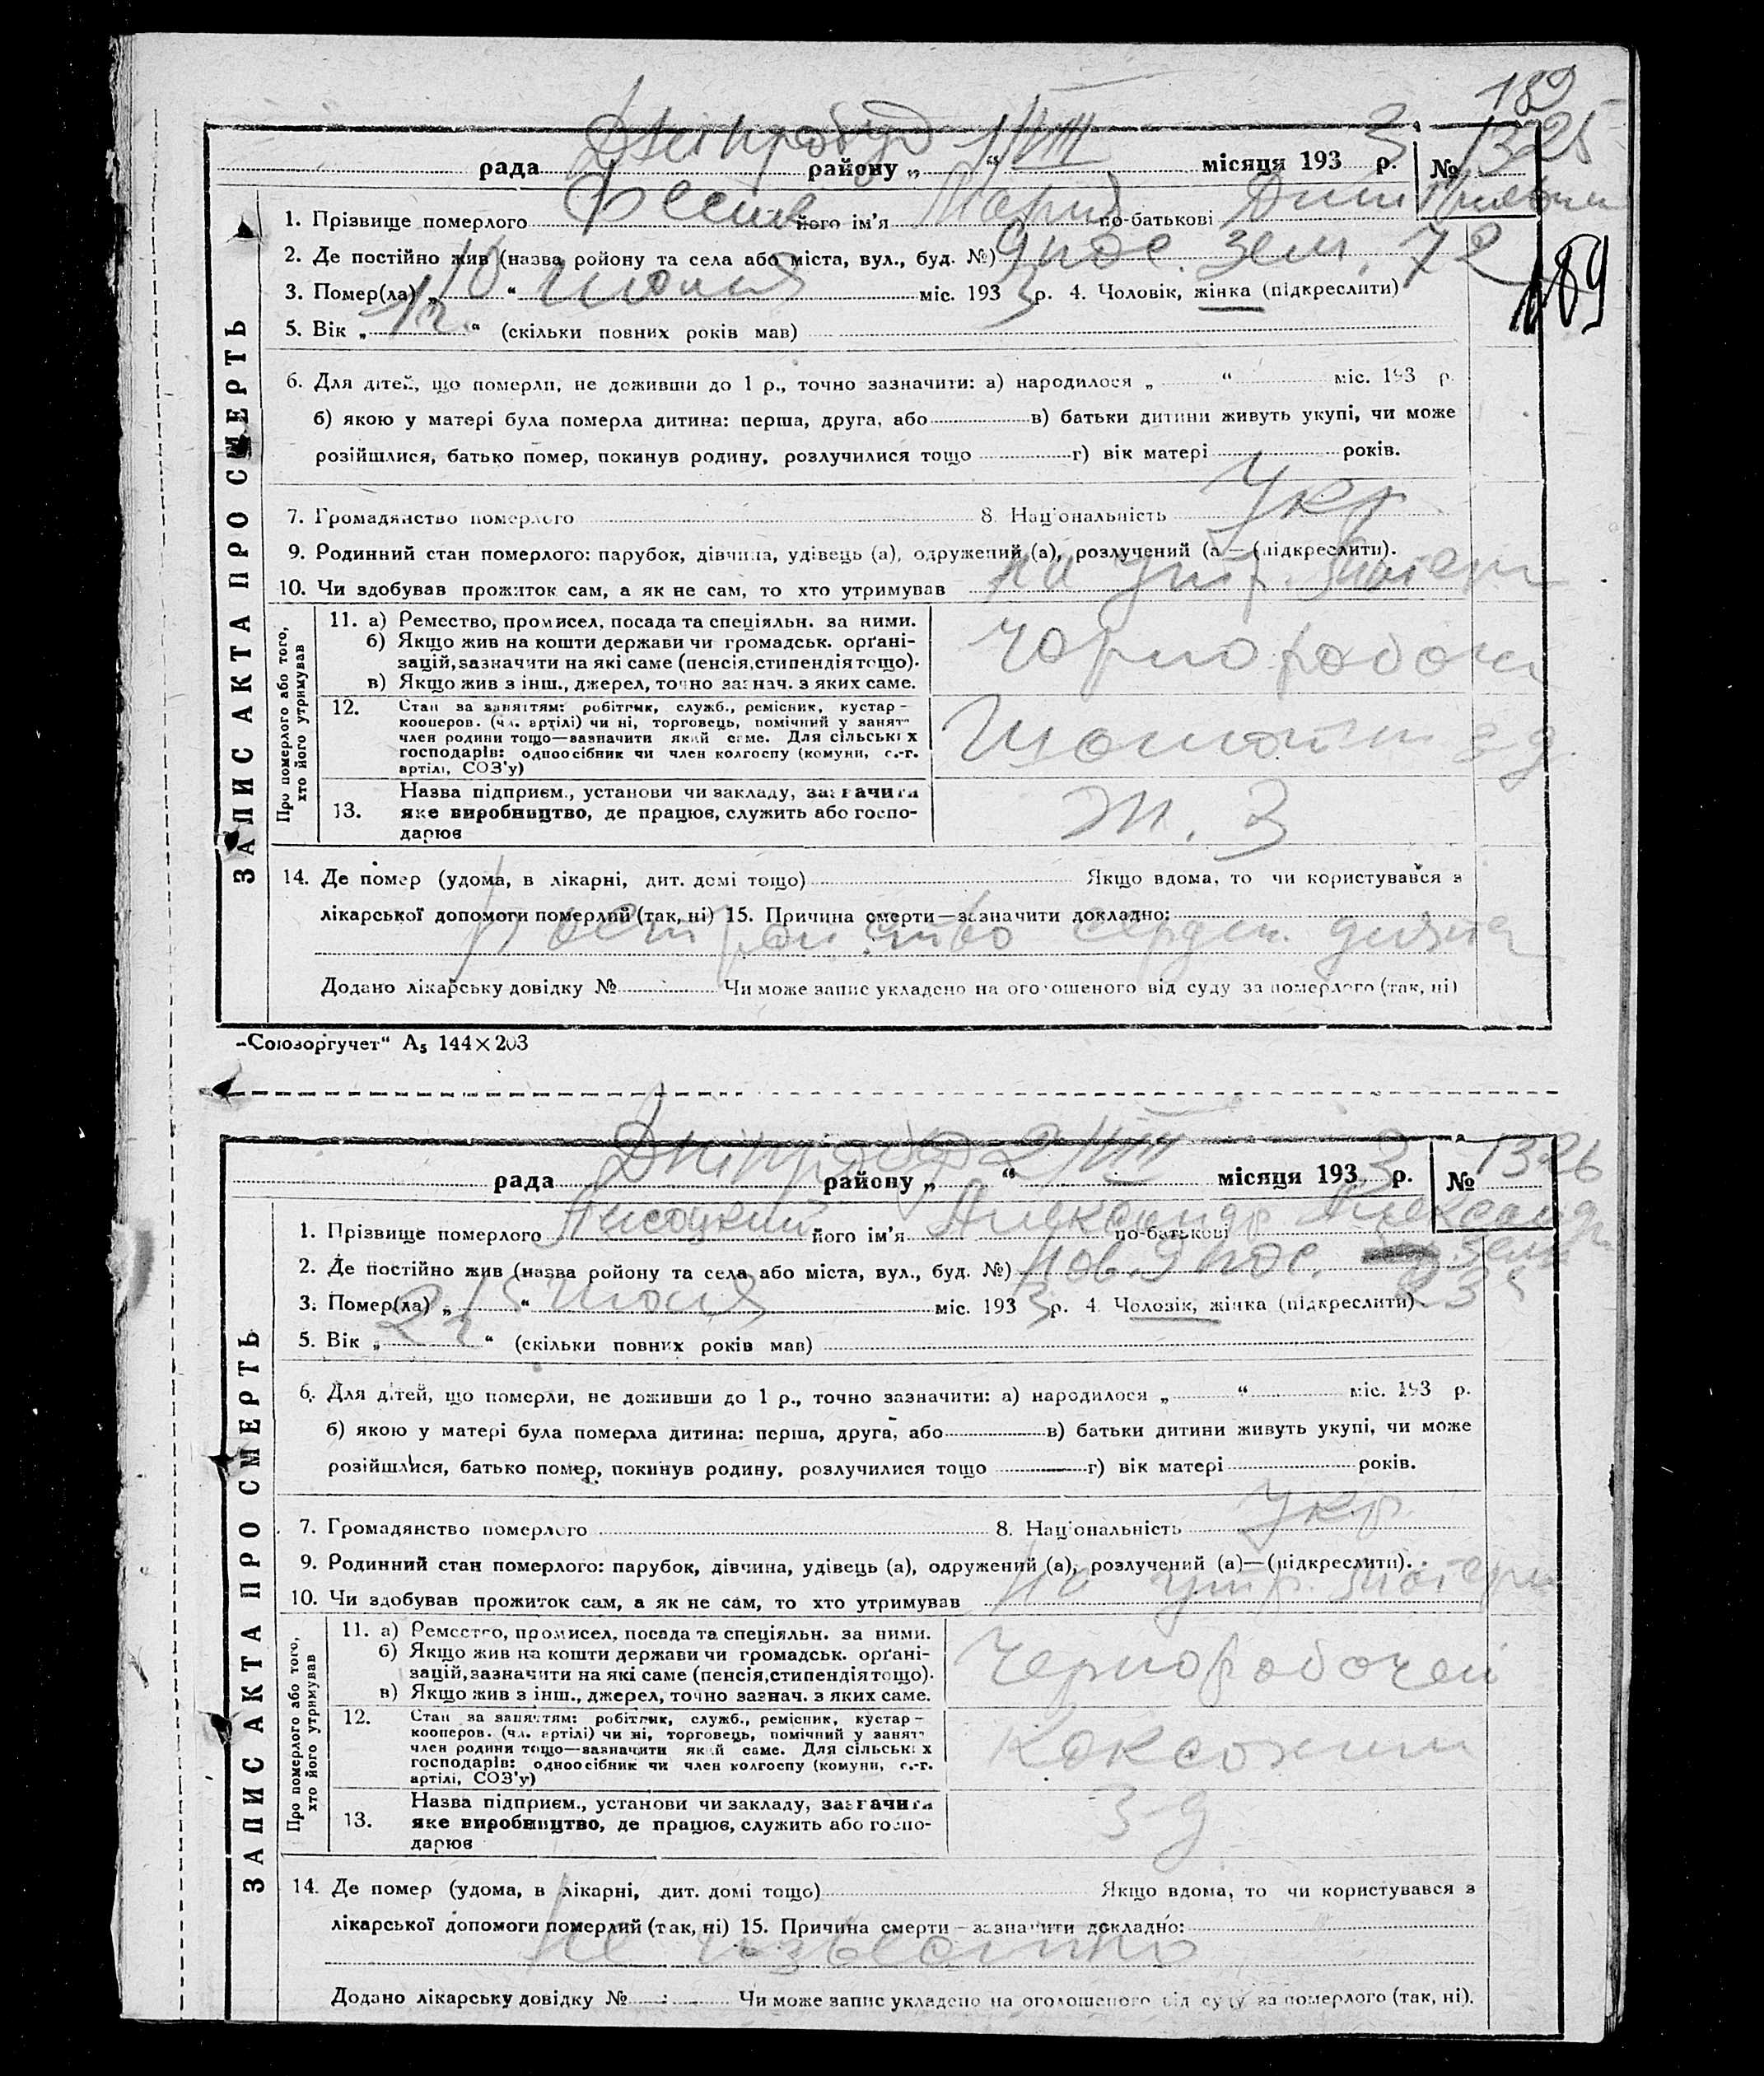 189
Дніпробуд 1/VIII 3
рада района „ “ місяця 193 р. № 1325
1. Прізвище померлого його ім’я Мария по-батькові
2. Де постійно жив (назва ройону та села або міста, вул., буд. №) 9 пос. зем. 72
189
3. Помер(ла) „ 10 “ июля міс. 193 3 р. 4. Чоловік, жінка (підкреслити)
5. Вік „ 1 г. “ (скільки повних років мав)
6. Для дітей, що померли, не доживши до 1 р., точно зазначити: а) народилося „ “ міс. 193 р.
б) якою у матері була померла дитина: перша, друга, або в) батьки дитини живуть укупі, чи може
розійшлися, батько помер, покинув родину, розлучилися тощо г) вік матері років.
7. Громадянство померлого 8. Національність Укр
9. Родинний стан померлого: парубок, дівчина, удівець (а), одружений (а), розлучений (а)—(підкреслити).
10. Чи здобував прожиток сам, а як не сам, то хто утримував на утр. матери
ЗАПИС АКТА ПРО СМЕРТЬ
Про померлого або того, хто його утримував
11. а) Ремество, промисел, посада та спеціяльн. за ними.
б) Якщо жив на кошти держави чи громадськ. орґані-
зацій, зазначити на які саме (пенсія, стипендія тощо).
в) Якщо жив з інш., джерел, точно зазнач. з яких саме.
12. Стан за заняттям: робітник, служб., ремісник, кустар—
кооперов. (чл. артілі) чи ні, торговець, помічний у занят
член родини тощо—зазначити який саме. Для сільських
господарів: одноосібник чи член колгоспу (комуни, с.-г.
артілі, СОЗ’у)
Шамотн зд
13. Назва підприєм., установи чи закладу, зазначити
яке виробництво, де працює, служить або госпо-
дарює
14. Де помер (удома, в лікарні, дит. домі тощо) Якщо вдома, то чи користувався з
лікарської допомоги померлий (так, ні) 15. Причина смерти—зазначити докладно:
сердеч.
Додано лікарську довідку № Чи може запис укладено на оголошеного від суду за померлого (так, ні)
„Союзоргучет“ А₅ 144×203
Дніпробуд 2/VIII 3
рада району „ “ місяця 193 р. № 1326
1. Прізвище померлого його ім’я Александр по-батькові Александр
2. Де постійно жив (назва ройону та села або міста, вул., буд. №) Нов. 9 пос. зем
235
3. Помер(ла) „ “ июля міс. 193 3 р. 4. Чоловік, жінка (підкреслити)
5. Вік „ 2 г “ (скільки повних років мав)
6. Для дітей, що померли, не доживши до 1 р., точно зазначити: а) народилося „ “ міс. 193 р.
б) якою у матері була померла дитина: перша, друга, або в) батьки дитини живуть укупі, чи може
розійшлися, батько помер, покинув родину, розлучилися тощо г) вік матері років.
7. Громадянство померлого 8. Національність Укр
9. Родинний стан померлого: парубок, дівчина, удівець (а), одружений (а), розлучений (а)—(підкреслити).
10. Чи здобував прожиток сам, а як не сам, то хто утримував на утр. матери
ЗАПИС АКТА ПРО СМЕРТЬ
Про померлого або того, хто його утримував
11. а) Ремество, промисел, посада та спеціяльн. за ними.
б) Якщо жив на кошти держави чи громадськ. орґані-
зацій, зазначити на які саме (пенсія, стипендія тощо).
в) Якщо жив з інш., джерел, точно зазнач. з яких саме.
Чернорабочей
12. Стан за заняттям: робітник, служб., ремісник, кустар—
кооперов. (чл. артілі) чи ні, торговець, помічний у занят
член родини тощо—зазначити який саме. Для сільських
господарів: одноосібник чи член колгоспу (комуни, с.-г.
артілі, СОЗ’у)
Коксохим
13. Назва підприєм., установи чи закладу, зазначити
яке виробництво, де працює, служить або госпо-
дарює
З-д
14. Де помер (удома, в лікарні, дит. домі тощо) Якщо вдома, то чи користувався з
лікарської допомоги померлий (так, ні) 15. Причина смерти—зазначити докладно:
не извесно
Додано лікарську довідку № Чи може запис укладено на оголошеного від суду за померлого (так, ні).